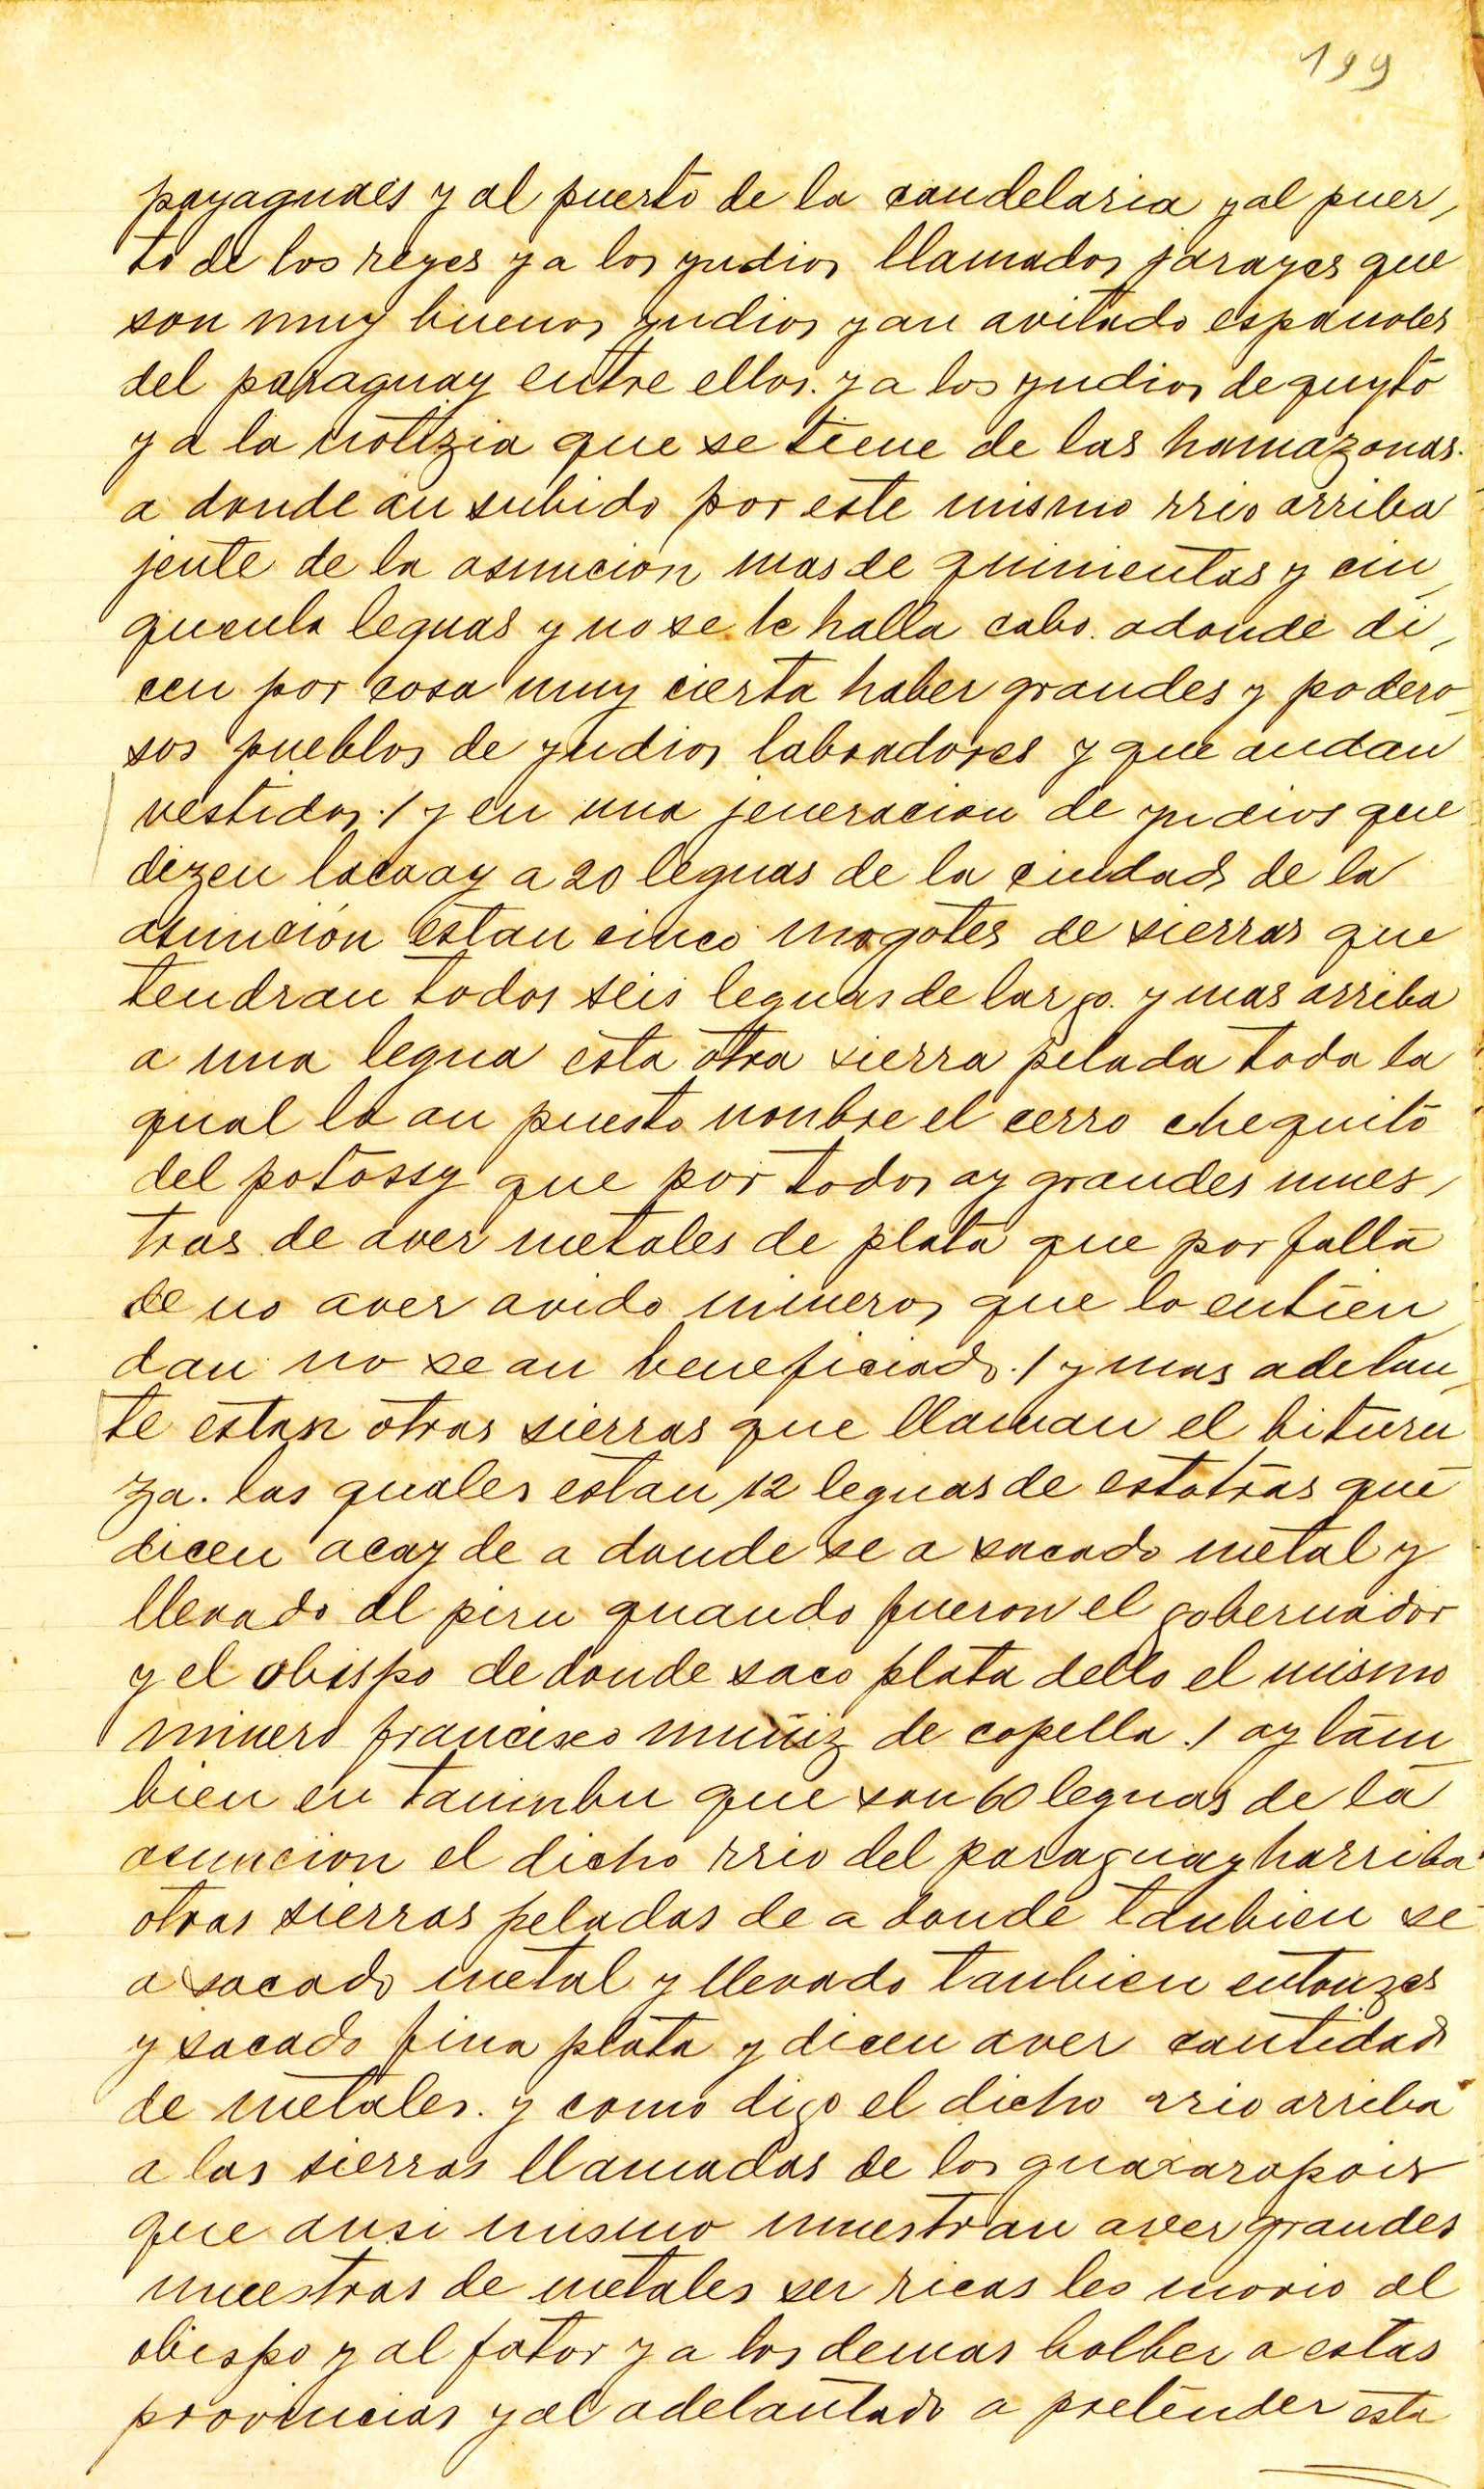 199
payaguaes y al puerto de la candelaria y al puer,
to de los reyes y a los yndios llamados jarayes que
son muy buenos yndios y an avitado españoles
del paraguay entre ellos. y a los yndios de quyto
y a la notizia que se tiene de las hamazonas.
a donde an subido por este mismo rrio arriba
jente de la asuncion mas de quinientas y cin,
quenta leguas y no se le halla cabo. adonde di,
cen por cosa muy cierta haber grandes y podero,
sos pueblos de yndios labradores y que andan
vestidos ./ y en una jeneracion de yndios que
dizen lacaay a 20 leguas de la ciudad de la
asunción estan cinco mogotes de sierras que
tendran todos seis leguas de largo. y mas arriba
a una legua esta otra sierra pelada toda la
qual la an puesto nonbre el cerro chequito
del potossy que por todos ay grandes mues,
tras de aver metales de plata que por falta
de no aver avido mineros que lo entien,
dan no se an beneficiado ./ y mas adelan,
te estan otras sierras que llaman el bituru
za. las quales estan 12 leguas de estotras que
dicen acay de a donde se a sacado metal y
llevado al piru quando fueron el gobernador
y el obispo de donde saco plata dello el mismo
minero francisco muñiz de copella ./ ay tam
bien en tanimbu que son 60 leguas de la
asuncion el dicho rrio del paraguay harriba
otras sierras peladas de a donde tanbien se
a sacado metal y llevado tanbien entonzes
y sacado fina plata y dicen aver cantidad
de metales. y como digo el dicho rrio arriba
a las sierras llamadas de los guaxarapois
que ansi mismo muestran aver grandes
muestras de metales ser ricas les movio al
obispo y al fator y a los demas bolber a estas
provincias y al adelantado a pretender esta